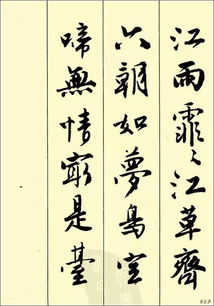 江雨霏〻江草齊
六朝如夢鳥空
啼無情最是臺